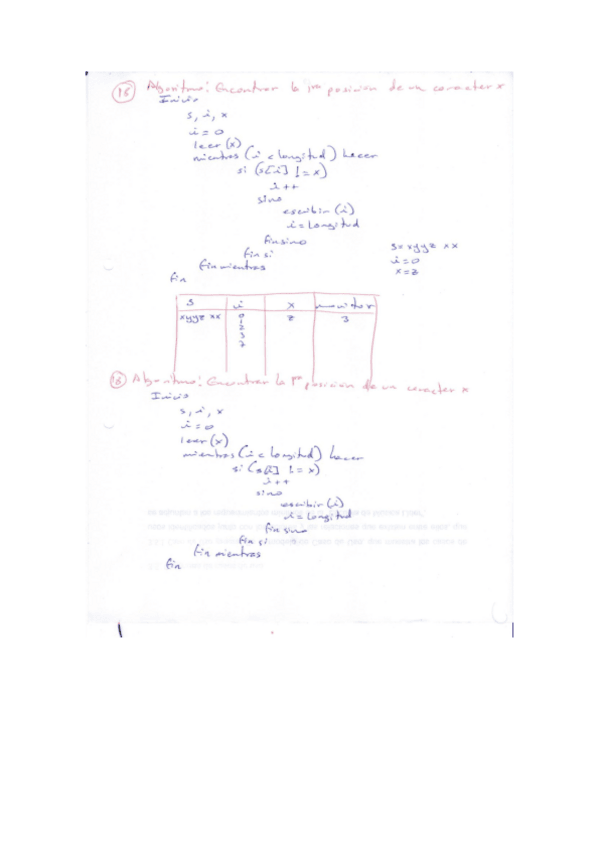 18 Algoritmo: Encontrar la 1ra posición de un caracter x
Inicio
s, i, x
i = 0
leer (x)
mientras (i < longitud) hacer
si (s[i] != x)
i++
sino
escribir (i)
i = Longitud
finsino
fin si
fin mientras
fin
s = xyyz xx
i = 0
x = z
s i x monitor
xyyz xx 0 z 3
1
2
3
7
18 Algoritmo: Encontrar la 1ra posición de un caracter x
Inicio
s, i, x
i = 0
leer (x)
mientras (i < longitud) hacer
si (s[i] != x)
i++
sino
escribir (i)
i = Longitud
fin sino
fin si
fin mientras
fin